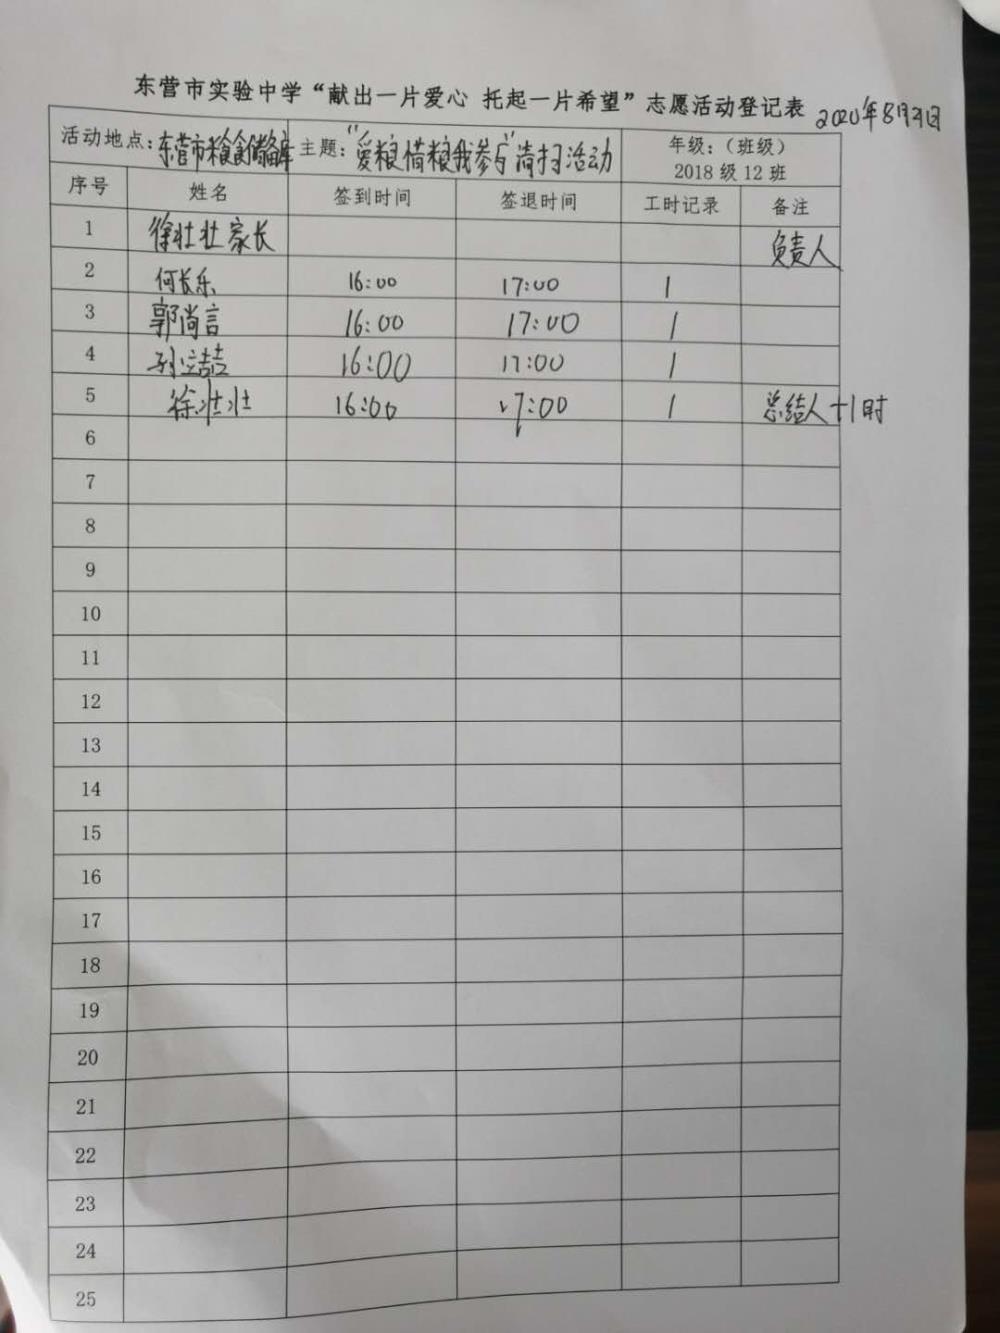 东营市实验中学“献出一片爱心 托起一片希望”志愿活动登记表 2020年8月21日
活动地点：东营市粮食储备库 主题：“爱粮惜粮我参与”清扫活动 年级：（班级）
2018 级 12 班
序号 姓名 签到时间 签退时间 工时记录 备注
1 徐壮壮家长 负责人
2 何长乐 16:00 17:00 1
3 郭尚言 16:00 17:00 1
4 孙 16:00 17:00 1
5 徐壮壮 16:00 17:00 1 总结人 +1时
6
7
8
9
10
11
12
13
14
15
16
17
18
19
20
21
22
23
24
25